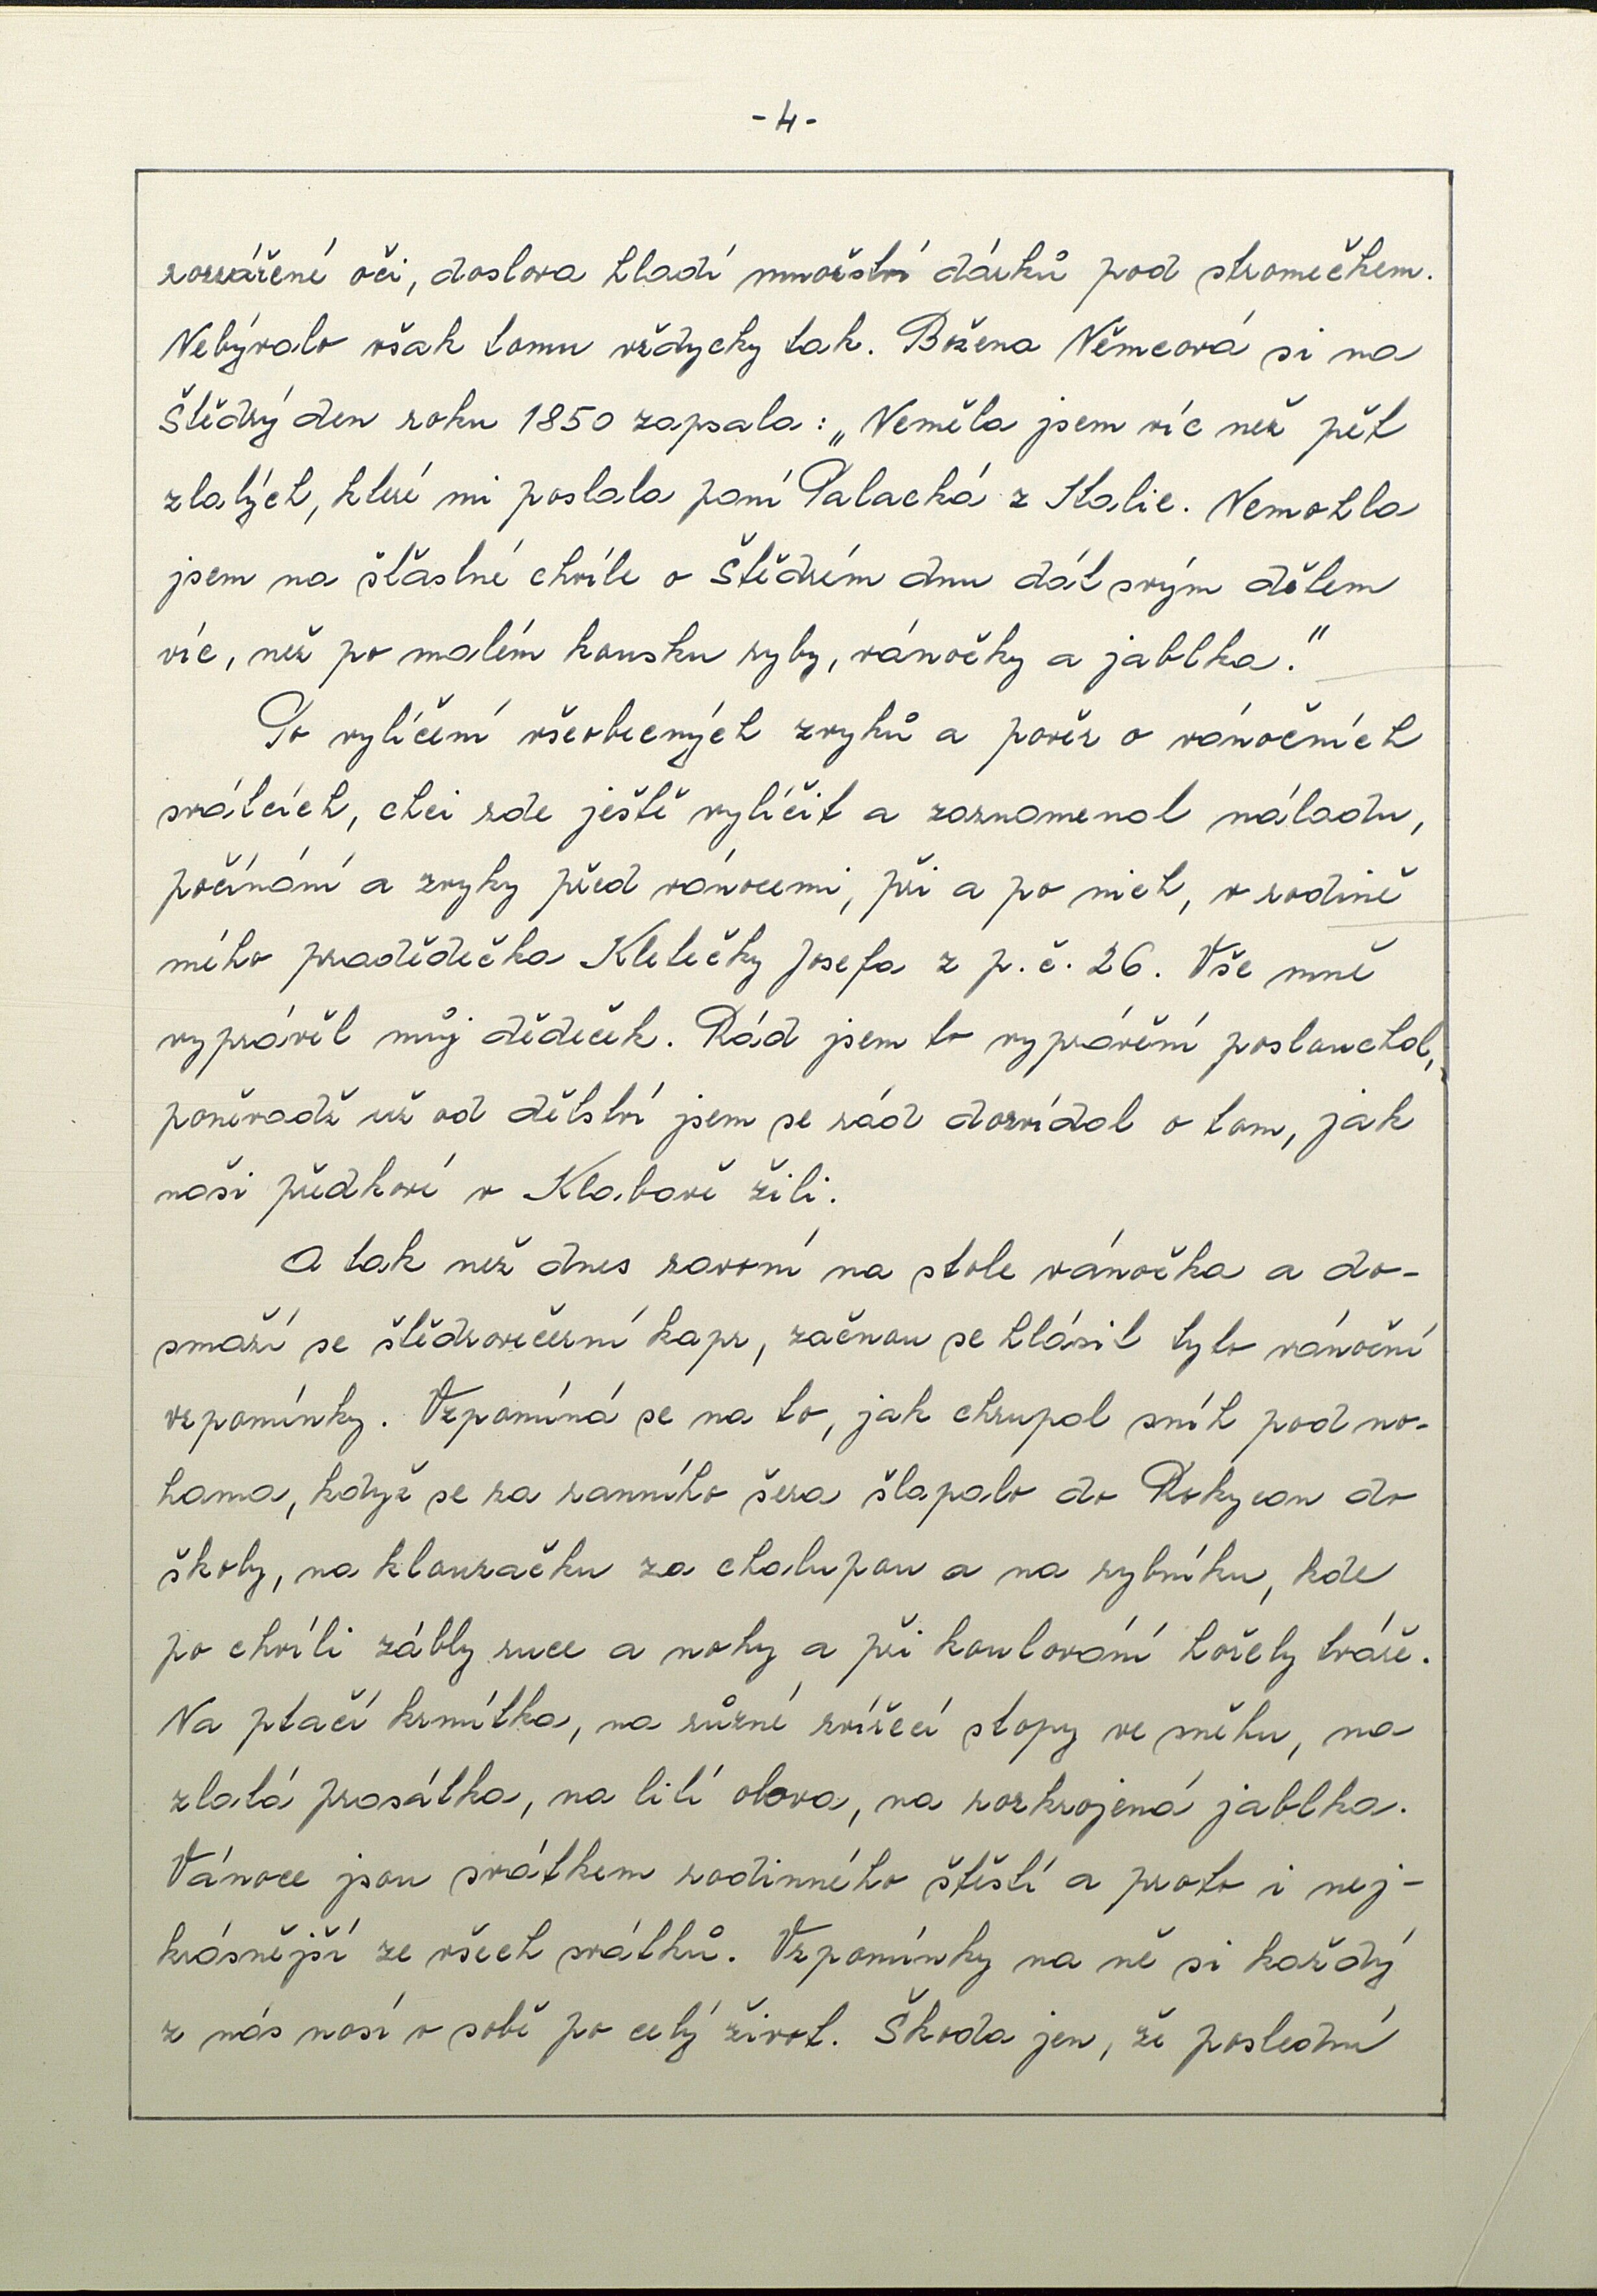 - 4 -
rozzářené oči, doslova hladí množství dárků pod stromečkem.
Nebývalo však tomu vždycky tak. Božena Němcová si na
Štědrý den roku 1850 zapsala: „Neměla jsem víc než pět
zlatých, které mi poslala paní Palacká z Italie. Nemohla
jsem na šťastné chvíle o Štědrém dnu dát svým dětem
víc, než po malém kousku ryby, vánočky a jablka."
Po vylíčení všeobecných zvyků a pověr o vánočních
svátcích, chci zde ještě vylíčit a zaznamenat náladu,
počínání a zvyky před vánocemi, při a po nich, v rodině
mého pradědečka Kletečky Josefa z p. č. 26. Vše mně
vyprávěl můj dědeček. Rád jsem to vyprávění poslouchal,
poněvadž už od dětství jsem se rád dozvídal o tom, jak
naši předkové v Klabavě žili.
A tak než dnes zavoní na stole vánočka a do-
smaží se štědrovečerní kapr, začnou se hlásit tyto vánoční
vzpomínky. Vzpomíná se na to, jak chrupal sníh pod no-
hama, když se za ranního šera šlapalo do Rokycan do
školy, na klouzačku za chalupou a na rybníku, kde
po chvíli zábly ruce a nohy a při koulování hořely tváře.
Na ptačí krmítka, na různé zvířecí stopy ve sněhu, na
zlatá prasátka, na lití olova, na rozkrojená jablka.
Vánoce jsou svátkem rodinného štěstí a proto i nej-
krásnější ze všech svátků. Vzpomínky na ně si každý
z nás nosí v sobě po celý život. Škoda jen, že poslední